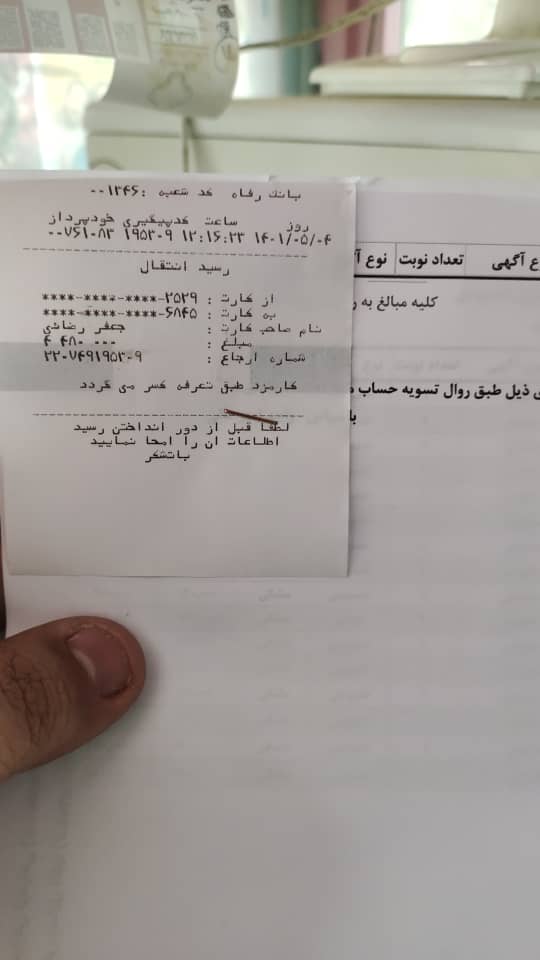 بانك رفاه كد شعبه :۱۳۴۶۰۰
روز ساعت كدپيگيري خودپرداز
۱۴۰۱/۰۵/۰۴ ۱۲:۱۶:۲۳ ۱۹۵۳۰۹ ۰۰۷۶۱۰۸۳
رسيد انتقال
از كارت : ۲۵۲۹-****-****-****
به كارت : ۶۸۴۵-****-****-****
نام صاحب كارت : جعفر رضائي
مبلغ : ۴ ۴۸۰ ۰۰۰
شماره ارجاع : ۲۲۰۷۴۹۱۹۵۳۰۹
كارمزد طبق تعرفه كسر مي گردد
لطفا قبل از دور انداختن رسيد
اطلاعات ان را امحا نماييد
باتشكر
ع آگهی تعداد نوبت نوع آ
کلیه مبالغ به ر
ی ذیل طبق روال تسویه حساب
با